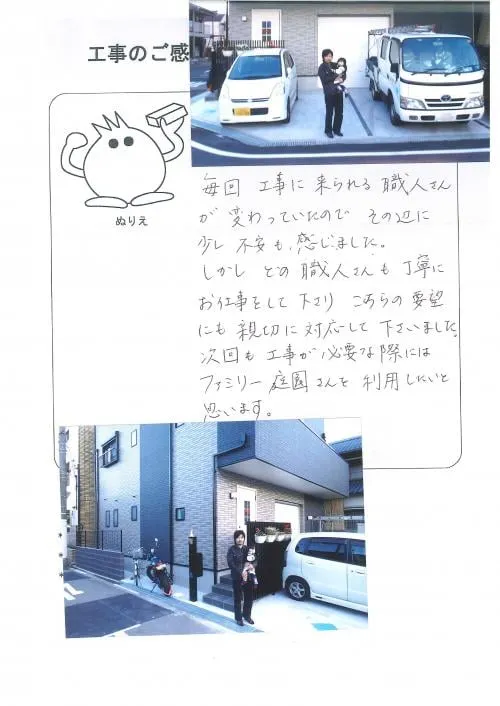 工事のご感
ぬりえ
毎回 工事に来られる職人さん
が 変わっていたので その辺に
少し 不安も 感じました。
しかし どの職人さんも 丁寧に
お仕事をして下さり こちらの要望
にも 親切に対応して下さいました。
次回も 工事が必要な際には
ファミリー庭園さんを 利用したいと
思います。